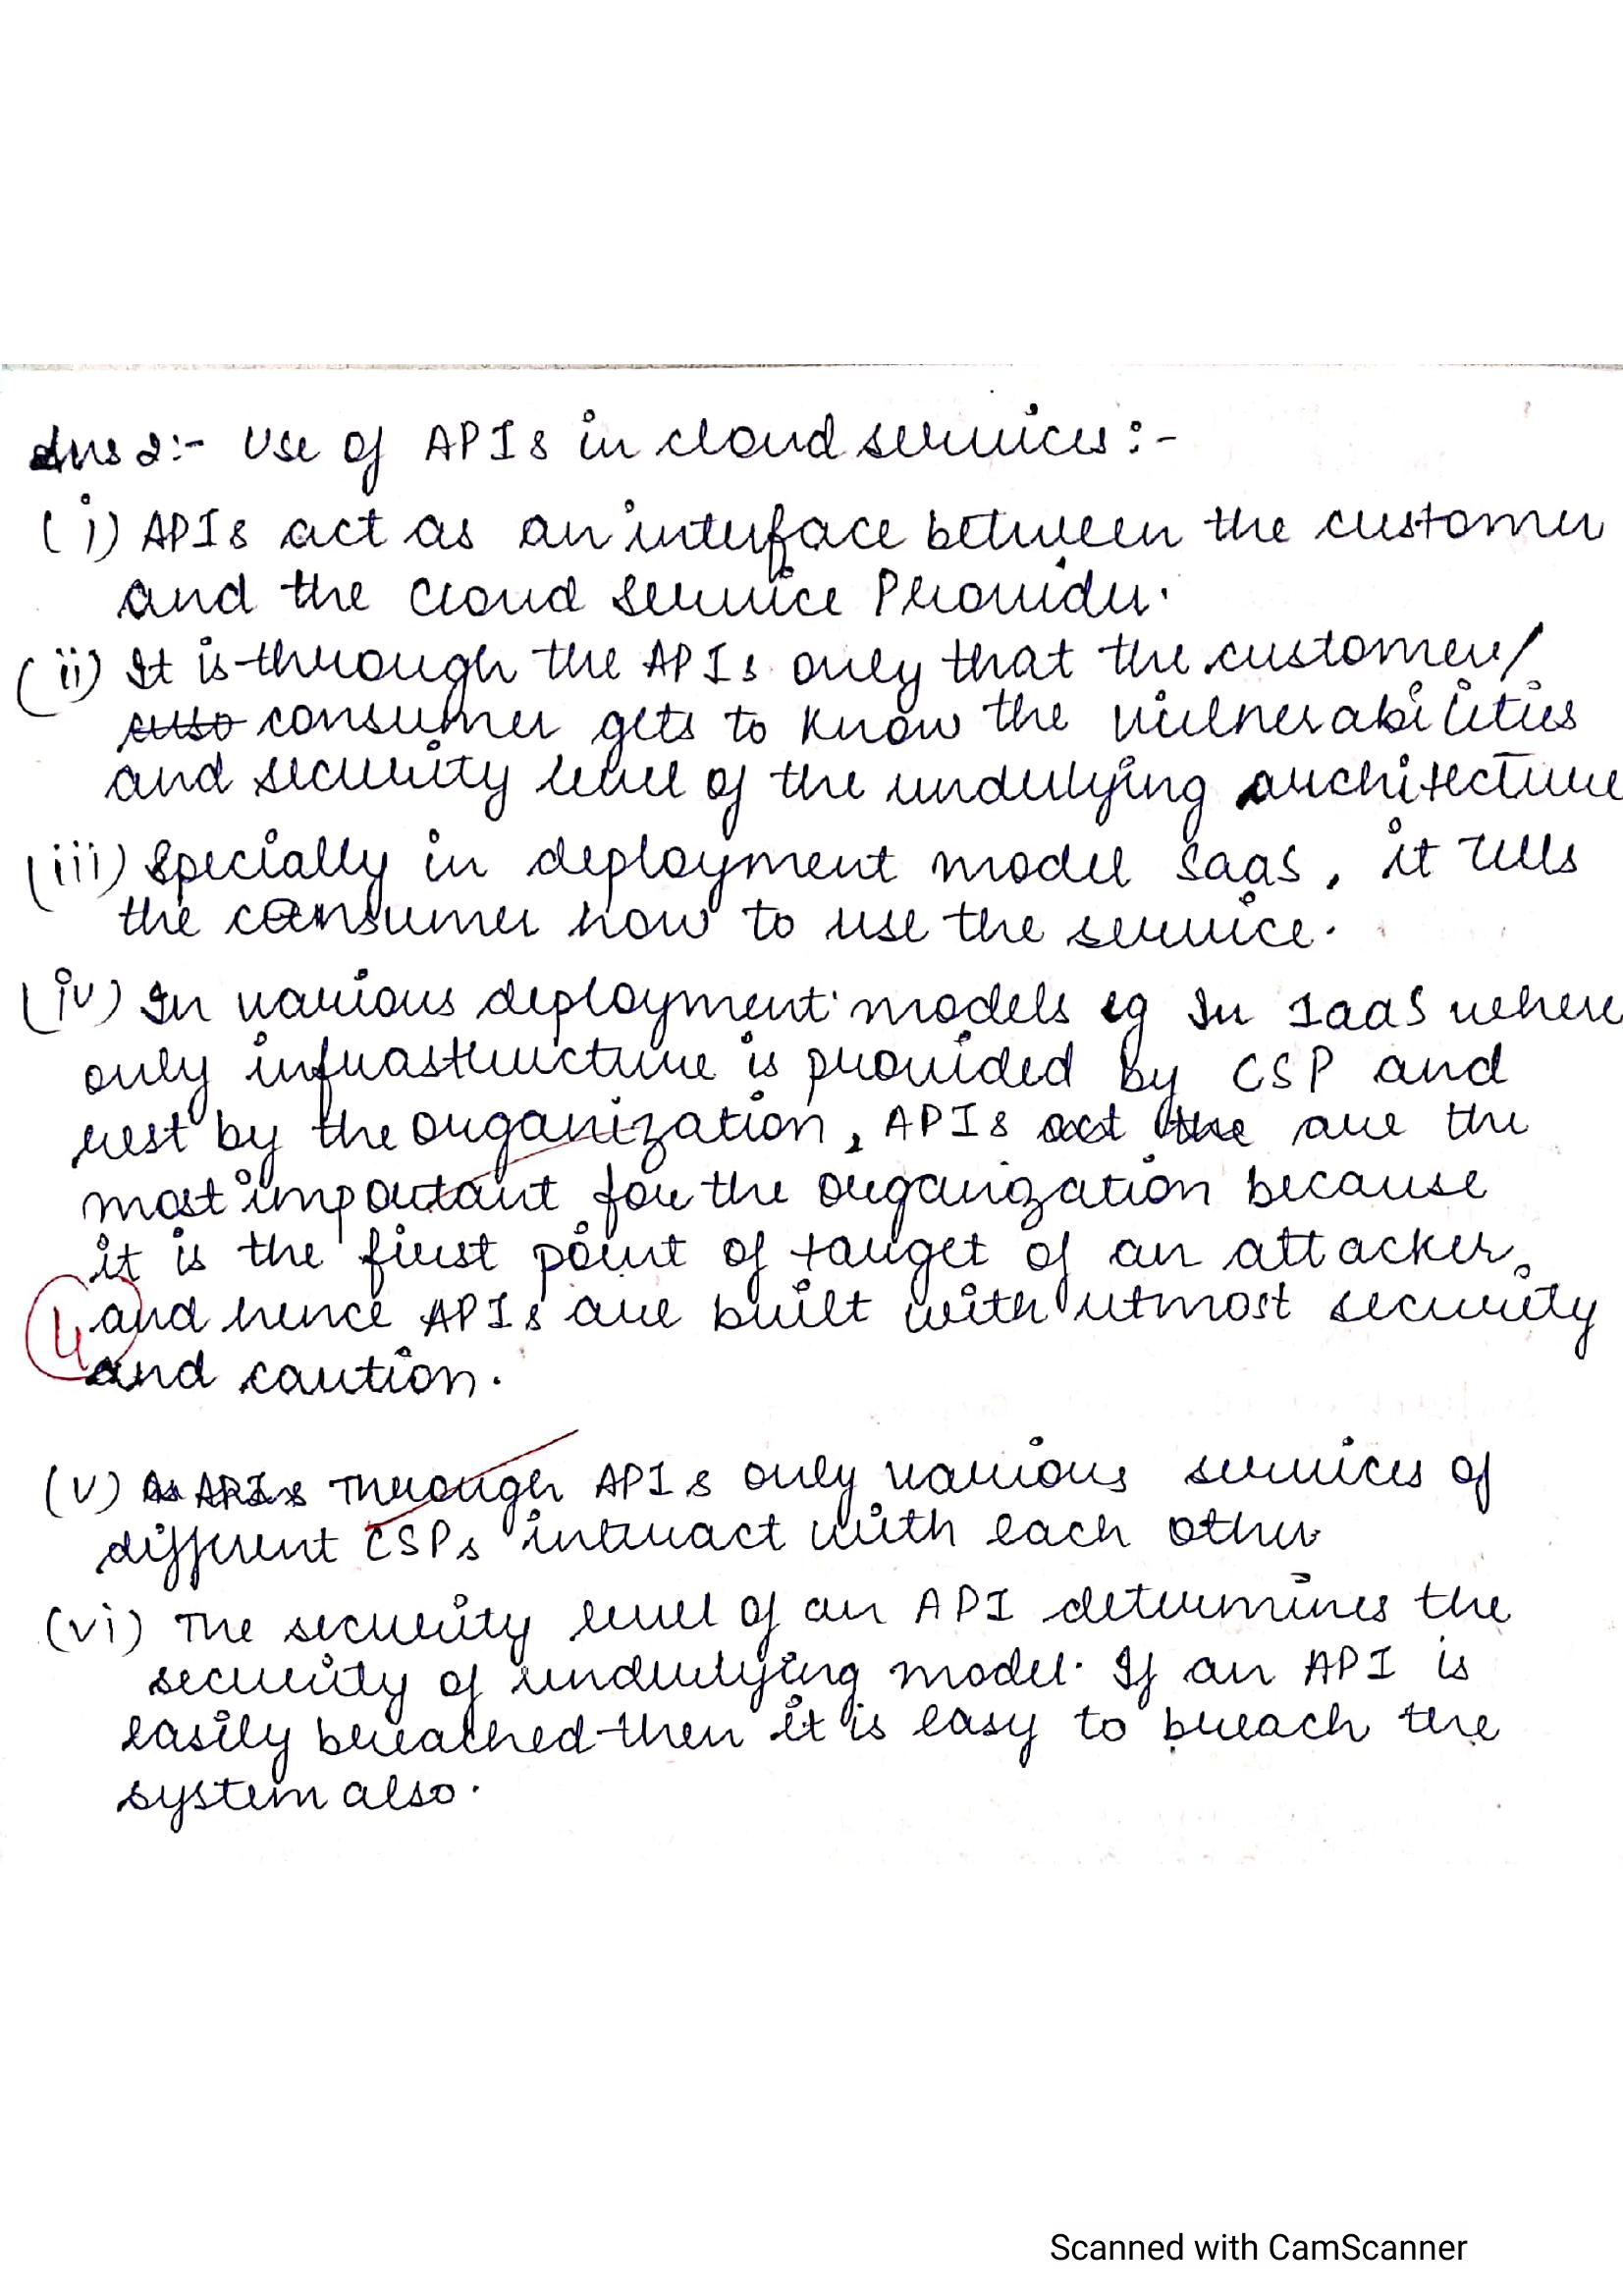 Ans 2:- Use of APIs in cloud services:-
(i) APIs act as an interface between the customer
and the Cloud Service Provider.
(ii) It is through the APIs only that the customer/
consumer gets to know the vulnerabilities
and security level of the underlying architecture
(iii) Specially in deployment model SaaS, it tells
the consumer how to use the service.
(iv) In various deployment models eg In IaaS where
only infrastructure is provided by CSP and
rest by the organization, APIs act the are the
most important for the organization because
it is the first point of target of an attacker
4 and hence APIs are built with utmost security
and caution.
(v) As APIs Through APIs only various services of
different CSPs interact with each other
(vi) The security level of an API determines the
security of underlying model. If an API is
easily breached then it is easy to breach the
system also.
Scanned with CamScanner